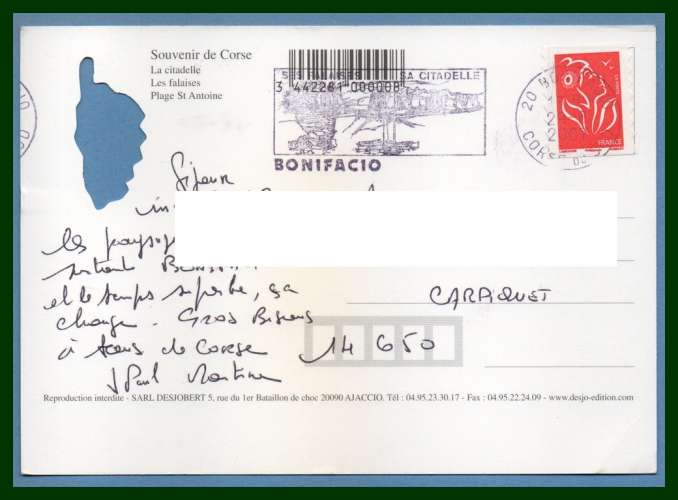 Souvenir de Corse
La citadelle
Les falaises
Plage St Antoine
SES FALAISES SA CITADELLE
3 442281 000008
BONIFACIO
20 BO
CORSE DU
FRANCE
Séjour
in
les paysages
surtout
et le temps superbe, ça
change. Gros Bisous
à tous de CORSE
J Paul Martine
CARPIQUET
14 650
Reproduction interdite - SARL DESJOBERT 5, rue du 1er Bataillon de choc 20090 AJACCIO. Tél : 04.95.23.30.17 - Fax : 04.95.22.24.09 - www.desjo-edition.com